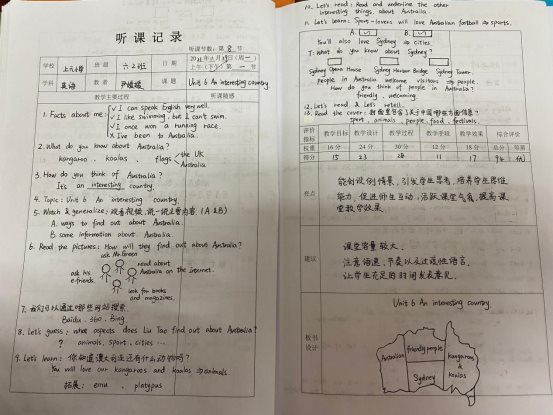 听课记录
听课节数: 第 8 节
学校 上元小学 班级 六2班 日期 2021年11月15日(周一)
上午(下午)第一节
学科 英语 教者 尹媛媛 课题 Unit 6 An interesting country
教学主要过程 听课随感
1. Facts about me: I can speak English very well.
I like swimming, but I can't swim.
I once won a running race.
I've been to Australia.
2. What do you know about Australia?
kangaroo, koalas, flags the UK
Australia
3. How do you think of Australia?
It's an interesting country.
4. Topic: Unit 6 An interesting country.
5. Watch & generalize: 观看视频,说一说主要内容 (A & B)
A. ways to find out about Australia
B. some information about Australia.
6. Read the pictures: How will they find out about Australia?
ask Mr Green
read about Australia on the internet.
ask his e-friends.
look for books and magazines.
7. 我们可以通过哪些网站搜索
Baidu, 360, Bing
8. Let's guess: what aspects does Liu Tao find out about Australia?
? animals, sport, cities ...
9. Let's learn: 你知道澳大利亚还有什么动物吗?
You will love our kangaroos and koalas ⇒ animals.
拓展: emu, platypus
10. Let's read: Read and underline the other
interesting things about Australia.
11. Let's learn: Sport-lovers will love Australian football ⇒ sports.
A. B.
You'll also love Sydney ⇒ cities.
T: What do you know about Sydney?
Sydney Opera House Sydney Harbour Bridge Sydney Tower
people in Australia welcome visitors ⇒ people
How do you think of people in Australia?
friendly, welcoming
12. Let's read & Let's retell.
13. Read the cover:
sport, animals, people, food, festivals
评价指标 教学目标 教学设计 教学过程 教学手段 教学效果 综合评价
权重 16分 24分 30分 12分 18分 总分 等第
得分 15 23 28 11 17 94 优
亮点
能创设例情景,引发学生思考,培养学生思维
能力,促进师生互动,活跃课堂气氛,提高课
堂教学效果.
建议
课堂容量较大.
注意语速、节奏以及过渡性语言.
让学生充足的时间发表意见.
板书设计
Unit 6 An interesting country.
Australian
friendly people
kangaroos & koalas
Sydney